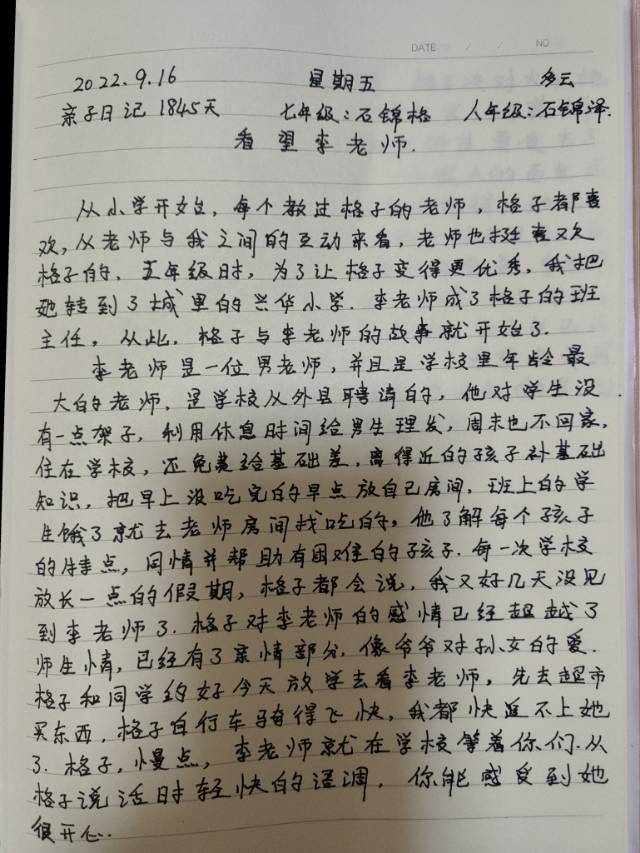 DATE / / NO
2022.9.16 星期五 多云
亲子日记 1845天 七年级:石锦格 八年级:石锦泽.
看望李老师.
从小学开始,每个教过格子的老师,格子都喜
欢,从老师与我之间的互动来看,老师也挺喜欢
格子的.五年级时,为了让格子变得更优秀,我把
她转到了城里的兴华小学.李老师成了格子的班
主任,从此,格子与李老师的故事就开始了.
李老师是一位男老师,并且是学校里年龄最
大的老师.是学校从外县聘请的,他对学生没
有一点架子,利用休息时间给男生理发,周末也不回家,
住在学校,还免费给基础差,离得近的孩子补基础
知识,把早上没吃完的早点放自己房间,班上的学
生饿了就去老师房间找吃的,他了解每个孩子
的特点,同情并帮助有困难的孩子.每一次学校
放长一点的假期,格子都会说,我又好几天没见
到李老师了.格子对李老师的感情已经超越了
师生情,已经有了亲情部分,像爷爷对孙女的爱.
格子和同学约好今天放学去看李老师,先去超市
买东西,格子自行车骑得飞快,我都快追不上她
了.格子,慢点,李老师就在学校等着你们.从
格子说话时轻快的语调,你能感受到她
很开心.